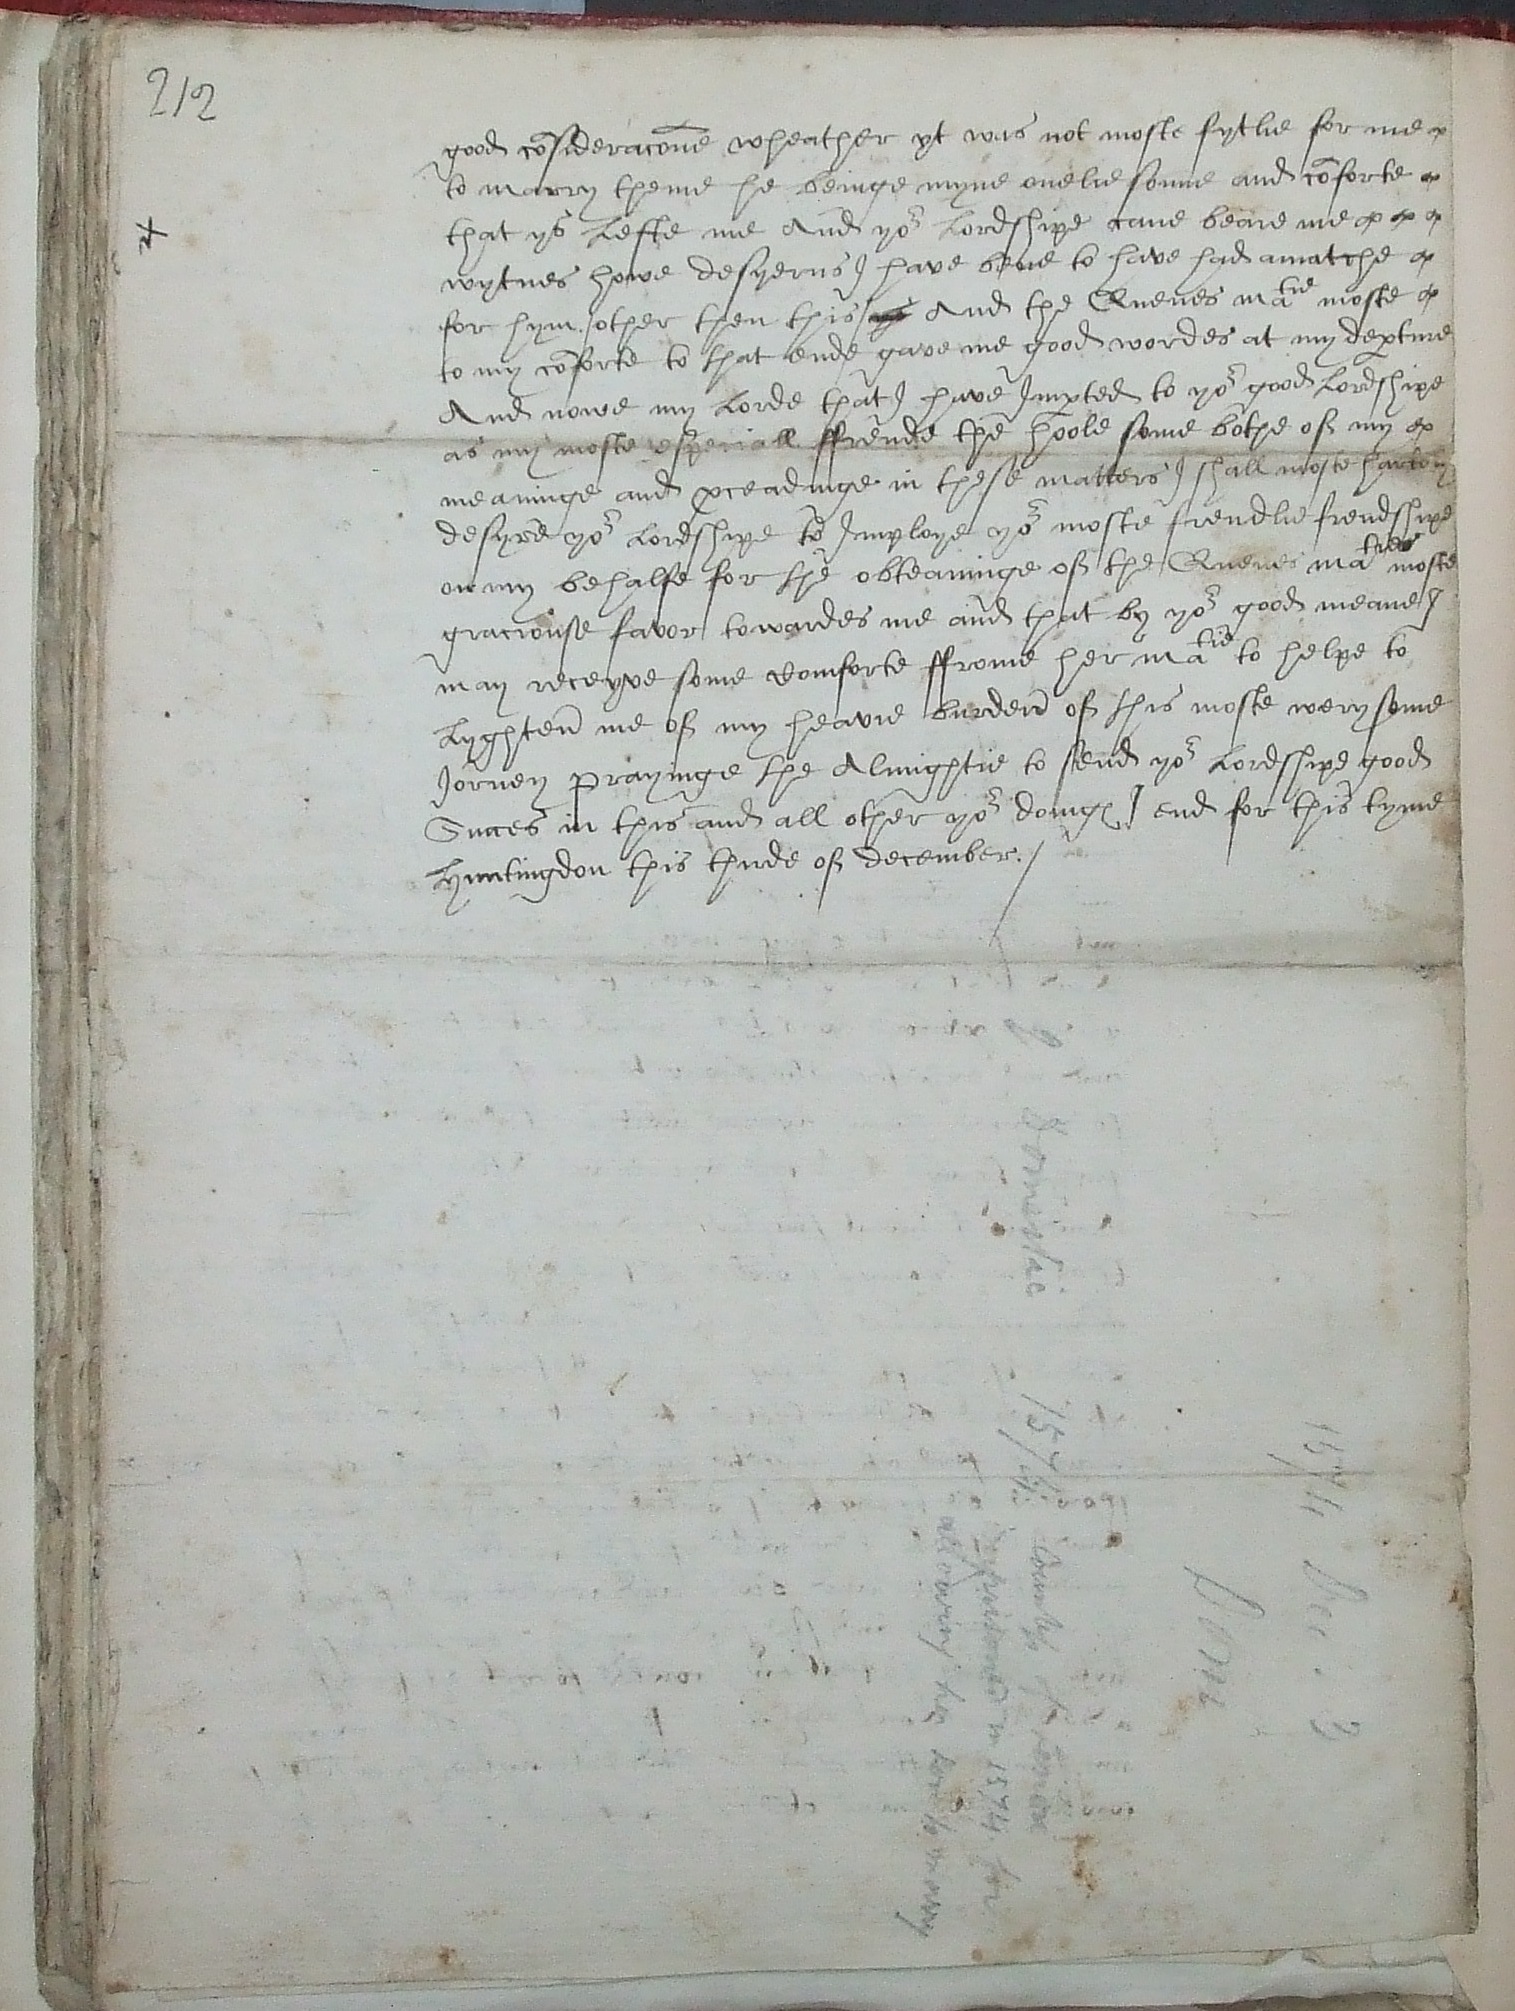 212
good cōsideracōne wheather yt was not moste fytlie for me
to marry theme he beinge myne onelie sonne and cōforte
that ys Lefte me And yor Lordshipe cane beare me
x
wytnes howe desyerus J have bene to have had a matche
for hym other then this And the Quenes Matie moste
to my cōforte to that ende gave me good wordes at my depture
And nowe my Lorde that J have Jmpted to yor good Lordshipe
as my moste esperiall ffrende the hoole some bothe of my
meaninge and pceadinge in these matters J shall moste hartely
desyre yor Lordshipe to Jmploye yor moste frendlie frendshipe
on my behalfe for the obteaninge of the Quenes Maties moste
graciouse favor towardes me and that by yor good meane J
may receyve some comforte ffrome her Matie to helpe to
Lyghten me of my heavie burden of this moste werysome
Jorney Prayinge the Almightie to send yor Lordshipe good
Succes in this and all other yor doinges J end for this tyme
Hyuntingdon this thirde of december./
Domestic
1574 Dec. 3
Dom
1574. Countess of Lenox
imprisoned in 1574 for
allowing her son to marry